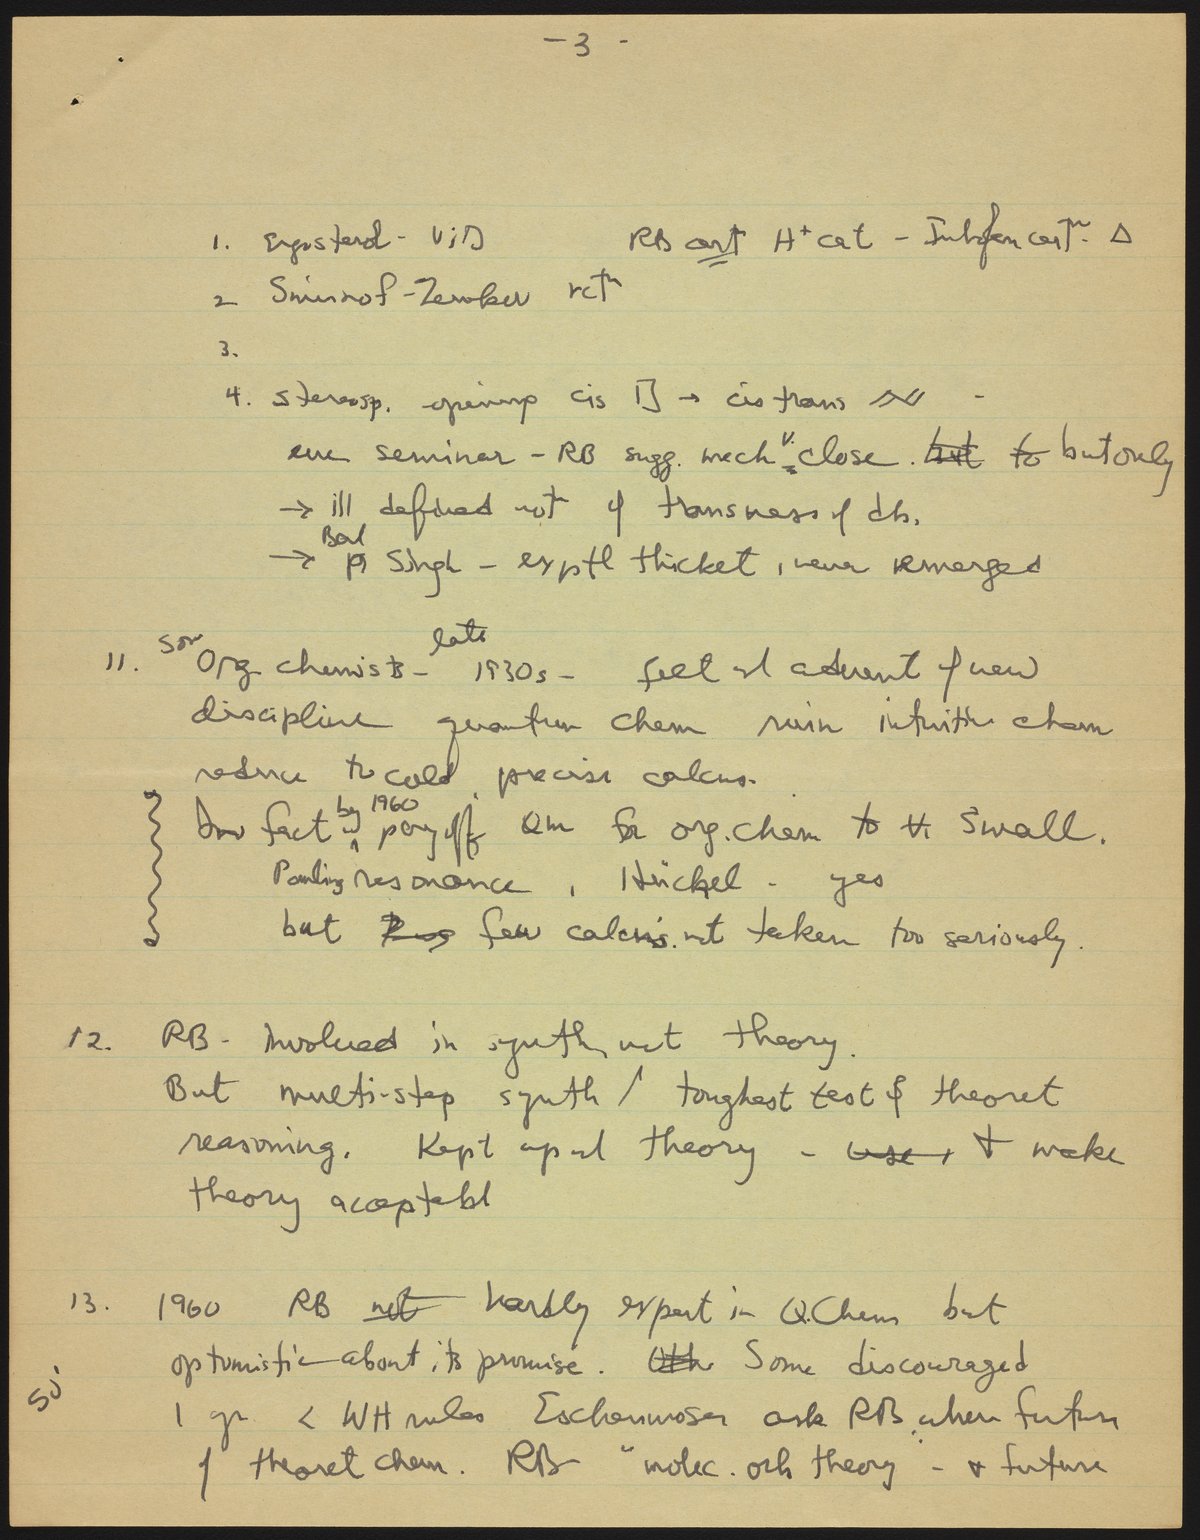 - 3 -
1. Ergosterol - Vit D RB cart H+ cat - Δ
2 Smirnof - Zamokov rctn
3.
4. stereosp. opening cis → cis trans -
eve seminar - RB sugg. mech v. close. but to but only
→ ill defined not of transness of db.
Bal
→ pi Singh - exptl thicket, never emerged
11. Som Org chemists - late 1930s - felt wl advent of new
discipline quantum chem ruin intuitive chem
reduce to cold, precise calcns.
In fact by 1960 payoff QM for org. chem to V. Small.
Pauling resonance, Hückel - yes
but few calcns. not taken too seriously.
12. RB - involved in synth, not theory.
But multi-step synth / toughest test of theoret
reasoning. Kept up wl theory - use, + make
theory acceptabl
13. 1960 RB not hardly expert in Q.Chem but
optumistic about its promise. Oth Some discouraged
1 yr < WH rules Eschenmoser ask RB where future
of theoret chem. RB "molec. orb theory - future